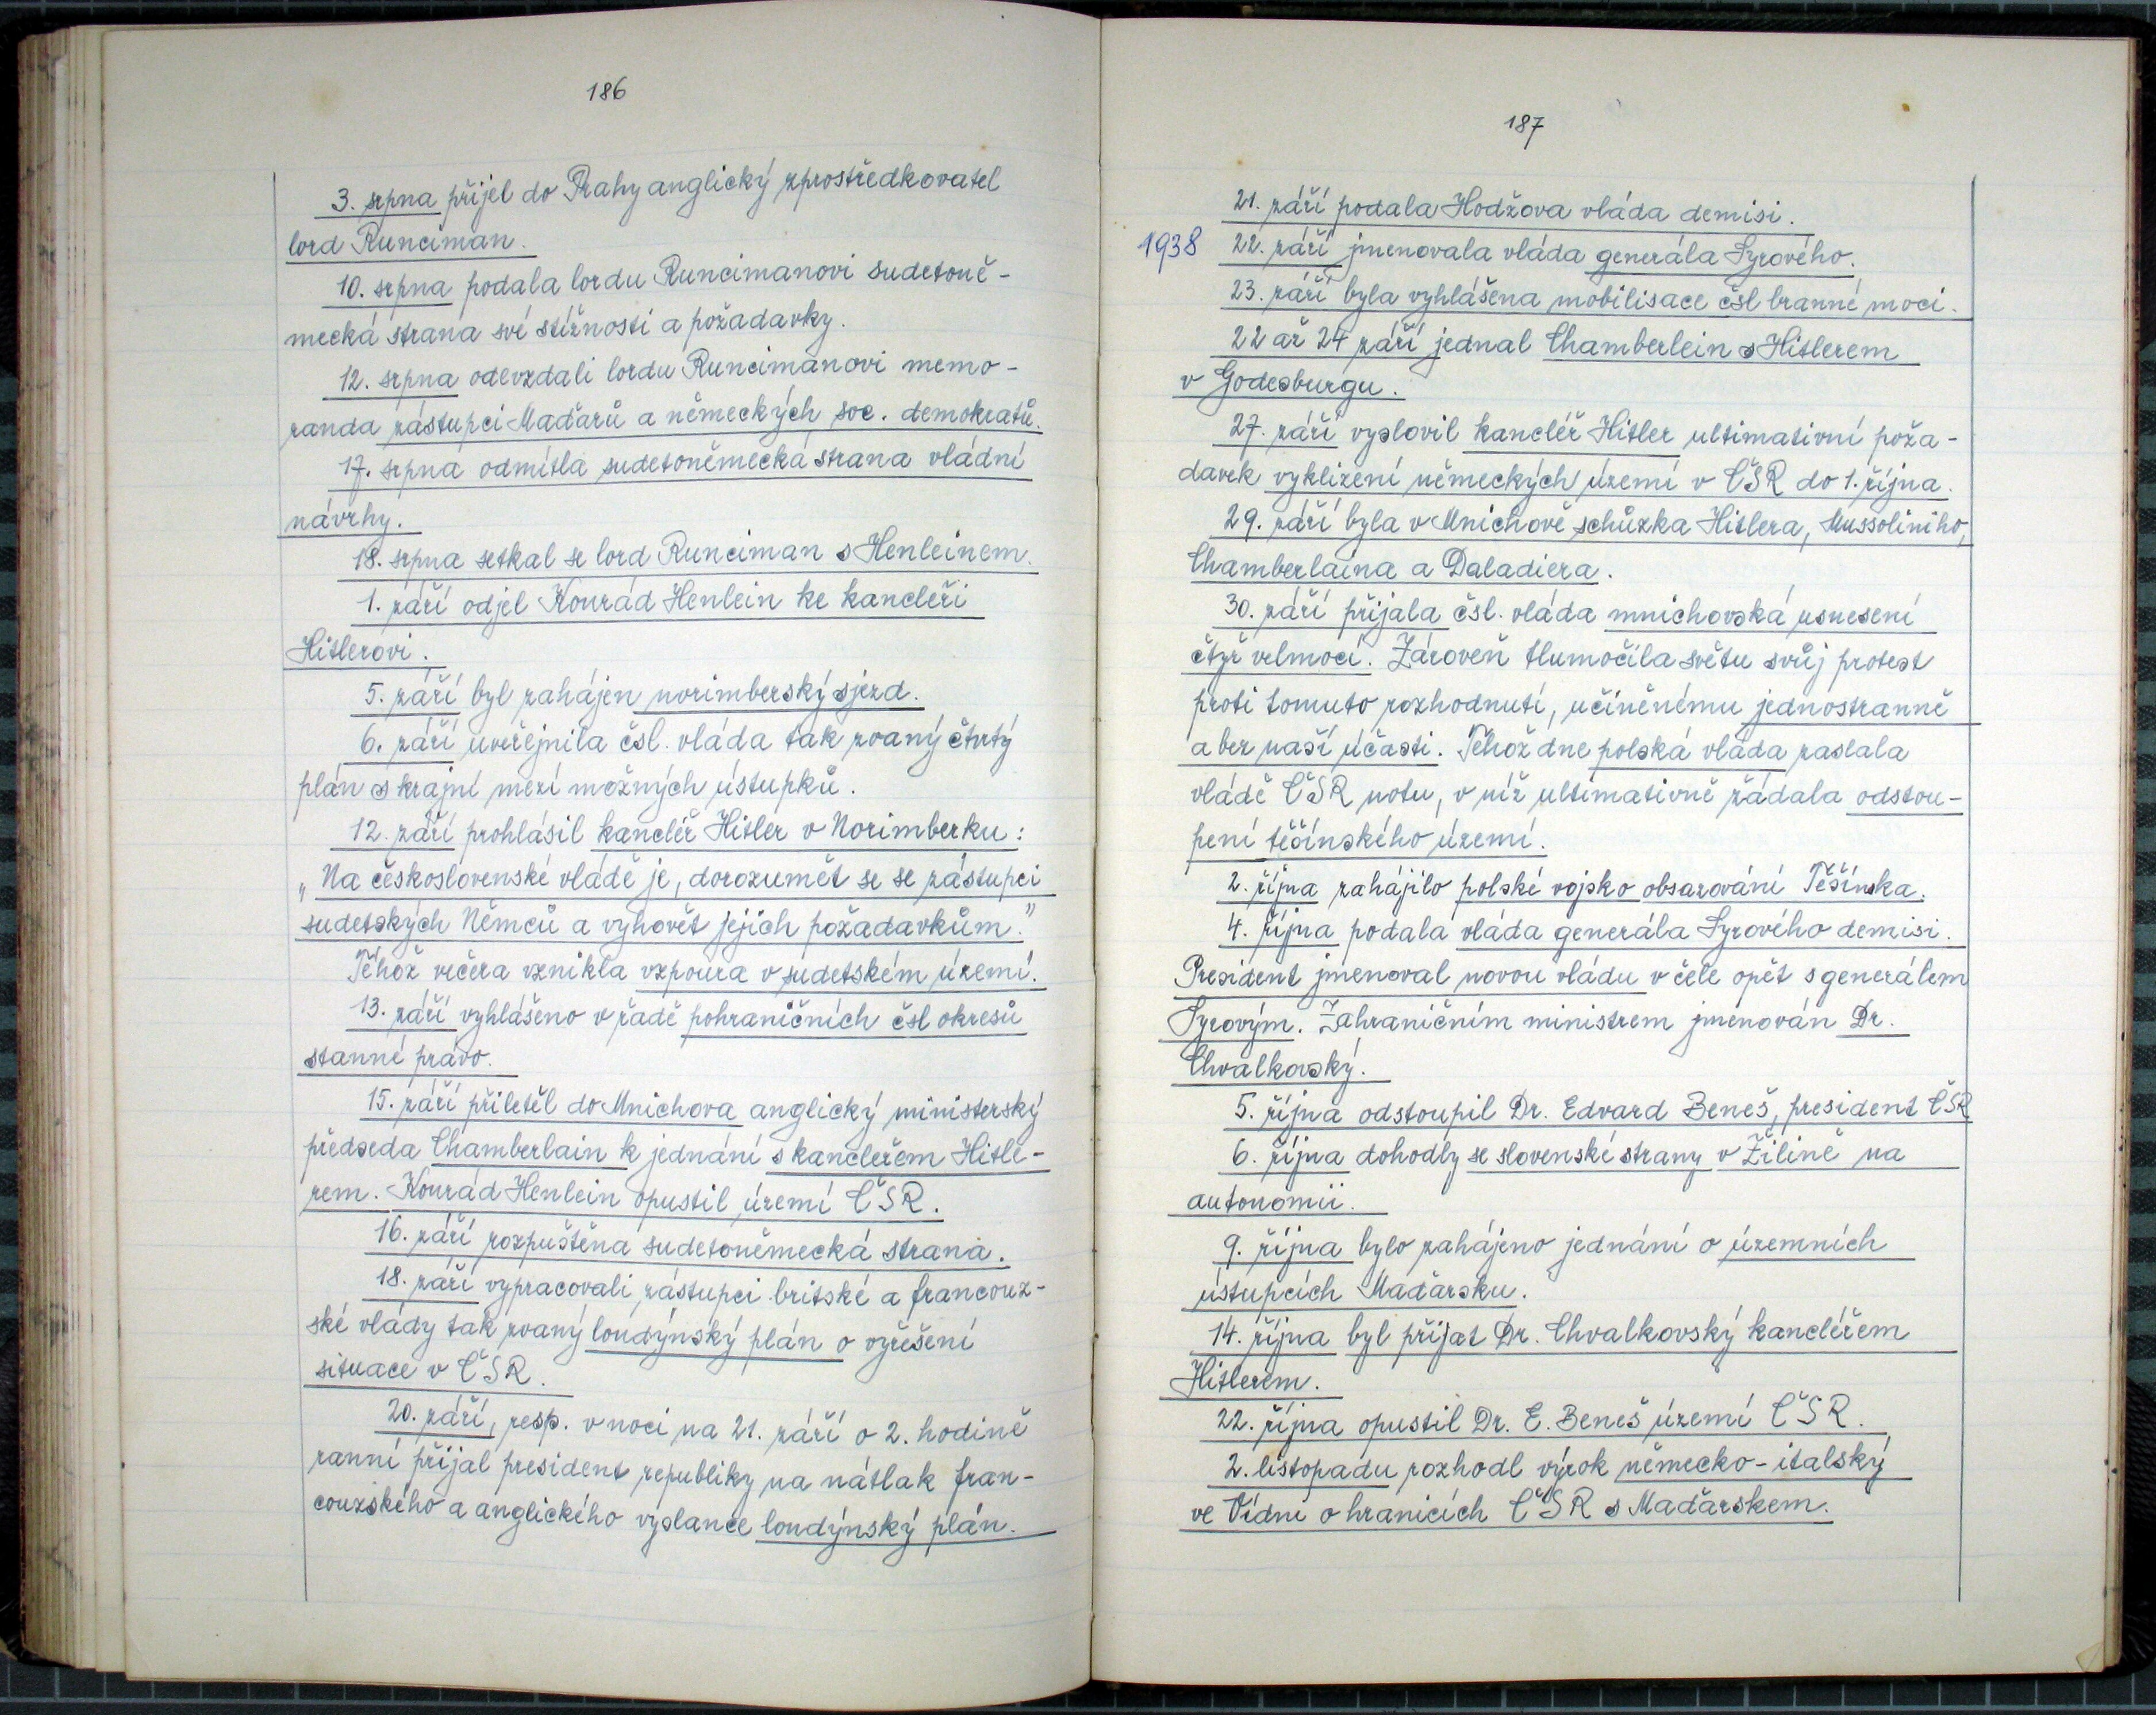 186
3. srpna přijel do Prahy anglický zprostředkovatel
lord Runciman.
10. srpna podala lordu Runcimanovi sudetoně-
mecká strana své stížnosti a požadavky.
12. srpna odevzdali lordu Runcimanovi memo-
randa zástupci Maďarů a německých soc. demokratů.
17. srpna odmítla sudetoněmecká strana vládní
návrhy.
18. srpna setkal se lord Runciman s Henleinem.
1. září odjel Konrád Henlein ke kancléři
Hitlerovi.
5. září byl zahájen norimberský sjezd.
6. září uveřejnila čsl. vláda tak zvaný čtvrtý
plán s krajní mezí možných ústupků.
12. září prohlásil kancléř Hitler v Norimberku:
„Na československé vládě je, dorozumět se se zástupci
sudetských Němců a vyhovět jejich požadavkům."
Téhož večera vznikla vzpoura v sudetském území.
13. září vyhlášeno v řadě pohraničních čsl okresů
stanné právo.
15. září přiletěl do Mnichova anglický ministerský
předseda Chamberlain k jednání s kancléřem Hitle-
rem. Konrád Henlein opustil území ČSR.
16. září rozpuštěna sudetoněmecká strana.
18. září vypracovali zástupci britské a francouz-
ské vlády tak zvaný londýnský plán o vyřešení
situace v ČSR.
20. září, resp. v noci na 21. září o 2. hodině
ranní přijal president republiky na nátlak fran-
couzského a anglického vyslance londýnský plán.
187
21. září podala Hodžova vláda demisi.
1938 22. září jmenovala vláda generála Syrového.
23. září byla vyhlášena mobilisace čsl branné moci.
22 až 24 září jednal Chamberlein s Hitlerem
v Godesburgu.
27. září vyslovil kancléř Hitler ultimativní poža-
davek vyklizení německých území v ČSR do 1. října.
29. září byla v Mnichově schůzka Hitlera, Mussoliniho,
Chamberlaina a Daladiera.
30. září přijala čsl. vláda mnichovská usnesení
čtyř velmocí. Zároveň tlumočila světu svůj protest
proti tomuto rozhodnutí, učiněnému jednostranně
a bez naší účasti. Téhož dne polská vláda zaslala
vládě ČSR notu, v níž ultimativně žádala odstou-
pení těšínského území.
2. října zahájilo polské vojsko obsazování Těšínska.
4. října podala vláda generála Syrového demisi.
President jmenoval novou vládu v čele opět s generálem
Syrovým. Zahraničním ministrem jmenován Dr.
Chvalkovský.
5. října odstoupil Dr. Edvard Beneš, president ČSR
6. října dohodly se slovenské strany v Žilině na
autonomii.
9. října bylo zahájeno jednání o územních
ústupcích Maďarsku.
14. října byl přijat Dr. Chvalkovský kancléřem
Hitlerem.
22. října opustil Dr. E. Beneš území ČSR.
2. listopadu rozhodl výrok německo-italský
ve Vídni o hranicích ČSR s Maďarskem.